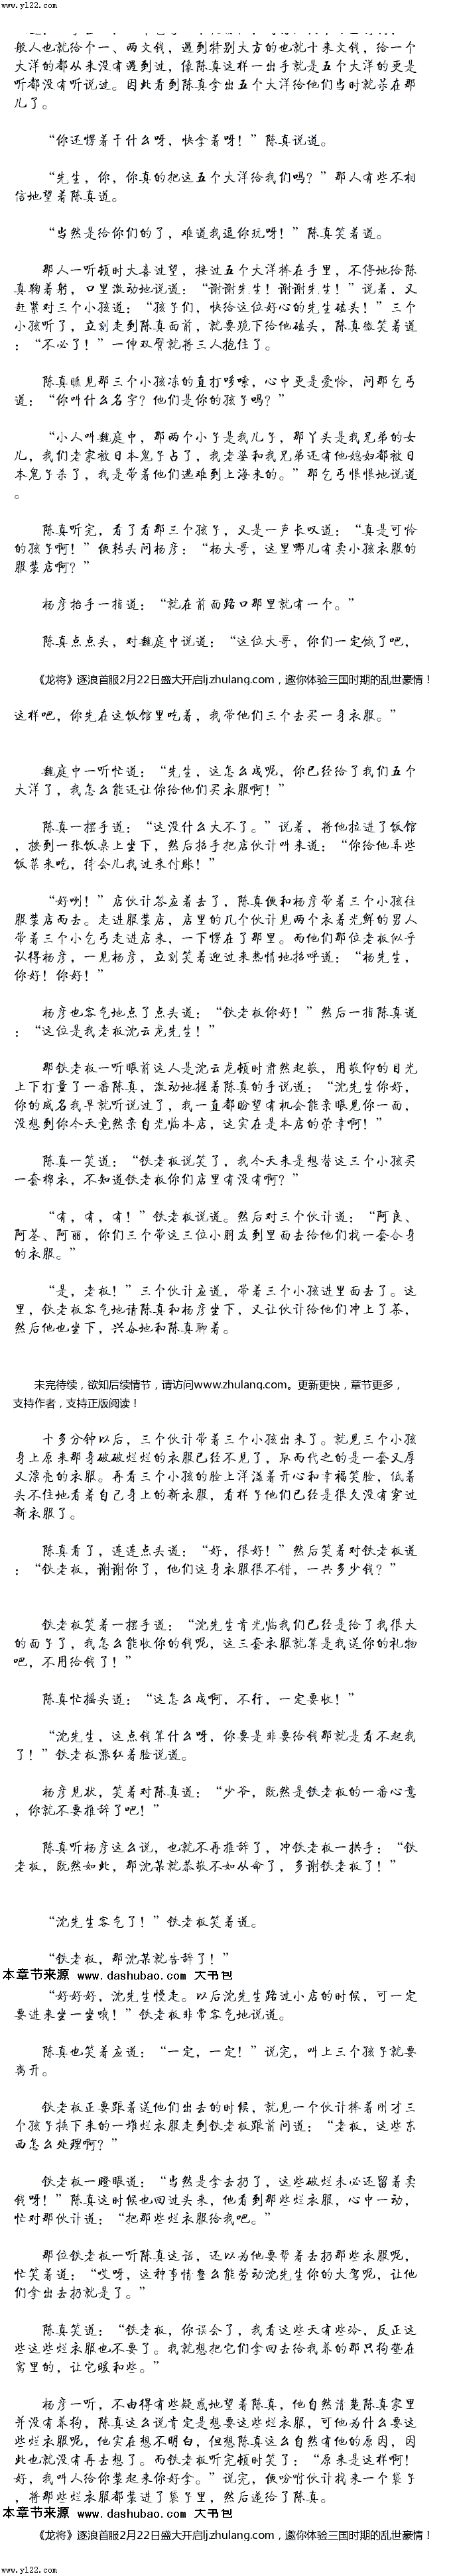 www.yl22.com
般人也就给个一、两文钱，遇到特别大方的也就十来文钱，给一个
大洋的都从来没有遇到过，像陈真这样一出手就是五个大洋的更是
听都没有听说过。因此看到陈真拿出五个大洋给他们当时就呆在那
儿了。
“你还愣着干什么呀，快拿着呀！”陈真说道。
“先生，你，你真的把这五个大洋给我们吗？”那人有些不相
信地望着陈真道。
“当然是给你们的了，难道我逗你玩呀！”陈真笑着道。
那人一听顿时大喜过望，接过五个大洋捧在手里，不停地给陈
真鞠着躬，口里激动地说道：“谢谢先生！谢谢先生！”说着，又
赶紧对三个小孩道：“孩子们，快给这位好心的先生磕头！”三个
小孩听了，立刻走到陈真面前，就要跪下给他磕头，陈真微笑着道
：“不必了！”一伸双臂就将三人抱住了。
陈真瞧见那三个小孩冻的直打哆嗦，心中更是爱怜，问那乞丐
道：“你叫什么名字？他们是你的孩子吗？”
“小人叫魏庭中，那两个小子是我儿子，那丫头是我兄弟的女
儿，我们老家被日本鬼子占了，我老婆和我兄弟还有他媳妇都被日
本鬼子杀了，我是带着他们逃难到上海来的。”那乞丐恨恨地说道
。
陈真听完，看了看那三个孩子，又是一声长叹道：“真是可怜
的孩子啊！”便转头问杨彦：“杨大哥，这里哪儿有卖小孩衣服的
服装店啊？”
杨彦抬手一指道：“就在前面路口那里就有一个。”
陈真点点头，对魏庭中说道：“这位大哥，你们一定饿了吧，
《龙将》逐浪首服2月22日盛大开启lj.zhulang.com，邀你体验三国时期的乱世豪情！
这样吧，你先在这饭馆里吃着，我带他们三个去买一身衣服。”
魏庭中一听忙道：“先生，这怎么成呢，你已经给了我们五个
大洋了，我怎么能还让你给他们买衣服啊！”
陈真一摆手道：“这没什么大不了。”说着，将他拉进了饭馆
，按到一张饭桌上坐下，然后招手把店伙计叫来道：“你给他弄些
饭菜来吃，待会儿我过来付账！”
“好咧！”店伙计答应着去了，陈真便和杨彦带着三个小孩往
服装店而去。走进服装店，店里的几个伙计见两个衣着光鲜的男人
带着三个小乞丐走进店来，一下愣在了那里。而他们那位老板似乎
认得杨彦，一见杨彦，立刻笑着迎过来热情地招呼道：“杨先生，
你好！你好！”
杨彦也客气地点了点头道：“铁老板你好！”然后一指陈真道
：“这位是我老板沈云龙先生！”
那铁老板一听眼前这人是沈云龙顿时肃然起敬，用敬仰的目光
上下打量了一番陈真，激动地握着陈真的手说道：“沈先生你好，
你的威名我早就听说过了，我一直都盼望有机会能亲眼见你一面，
没想到你今天竟然亲自光临本店，这实在是本店的荣幸啊！”
陈真一笑道：“铁老板说笑了，我今天来是想替这三个小孩买
一套棉衣，不知道铁老板你们店里有没有啊？”
“有，有，有！”铁老板说道。然后对三个伙计道：“阿良、
阿荃、阿丽，你们三个带这三位小朋友到里面去给他们找一套合身
的衣服。”
“是，老板！”三个伙计应道，带着三个小孩进里面去了。这
里，铁老板客气地请陈真和杨彦坐下，又让伙计给他们冲上了茶，
然后他也坐下，兴奋地和陈真聊着。
未完待续，欲知后续情节，请访问www.zhulang.com。更新更快，章节更多，
支持作者，支持正版阅读！
十多分钟以后，三个伙计带着三个小孩出来了。就见三个小孩
身上原来那身破破烂烂的衣服已经不见了，取而代之的是一套又厚
又漂亮的衣服。再看三个小孩的脸上洋溢着开心和幸福笑脸，低着
头不住地看着自己身上的新衣服，看样子他们已经是很久没有穿过
新衣服了。
陈真看了，连连点头道：“好，很好！”然后笑着对铁老板道
：“铁老板，谢谢你了，他们这身衣服很不错，一共多少钱？”
铁老板笑着一摆手道：“沈先生肯光临我们已经是给了我很大
的面子了，我怎么能收你的钱呢，这三套衣服就算是我送你的礼物
吧，不用给钱了！”
陈真忙摇头道：“这怎么成啊，不行，一定要收！”
“沈先生，这点钱算什么呀，你要是非要给钱那就是看不起我
了！”铁老板涨红着脸说道。
杨彦见状，笑着对陈真道：“少爷，既然是铁老板的一番心意
，你就不要推辞了吧！”
陈真听杨彦这么说，也就不再推辞了，冲铁老板一拱手：“铁
老板，既然如此，那沈某就恭敬不如从命了，多谢铁老板了！”
“沈先生客气了！”铁老板笑着道。
“铁老板，那沈某就告辞了！”
本章节来源 www.dashubao.com 大书包
“好好好，沈先生慢走。以后沈先生路过小店的时候，可一定
要进来坐一坐哦！”铁老板非常客气地说道。
陈真也笑着应道：“一定，一定！”说完，叫上三个孩子就要
离开。
铁老板正要跟着送他们出去的时候，就见一个伙计捧着刚才三
个孩子换下来的一堆烂衣服走到铁老板跟前问道：“老板，这些东
西怎么处理啊？”
铁老板一瞪眼道：“当然是拿去扔了，这些破烂未必还留着卖
钱呀！”陈真这时候也回过头来，他看到那些烂衣服，心中一动，
忙对那伙计道：“把那些烂衣服给我吧。”
那位铁老板一听陈真这话，还以为他要帮着去扔那些衣服呢，
忙笑着道：“哎呀，这种事情怎么能劳动沈先生你的大驾呢，让他
们拿出去扔就是了。”
陈真笑道：“铁老板，你误会了，我看这些天有些冷，反正这
些这些烂衣服也不要了。我就想把它们拿回去给我养的那只狗垫在
窝里的，让它暖和些。”
杨彦一听，不由得有些疑惑地望着陈真，他自然清楚陈真家里
并没有养狗，陈真这么说肯定是想要这些烂衣服，可他为什么要这
些烂衣服呢，他实在想不明白，但想陈真这么自然有他的原因，因
此也就没有再去想了。而铁老板听完顿时笑了：“原来是这样啊！
好，我叫人给你装起来你好拿。”说完，便吩咐伙计找来一个袋子
，将那些烂衣服都装进了袋子里，然后递给了陈真。
本章节来源 www.dashubao.com 大书包
《龙将》逐浪首服2月22日盛大开启lj.zhulang.com，邀你体验三国时期的乱世豪情！
www.yl22.com